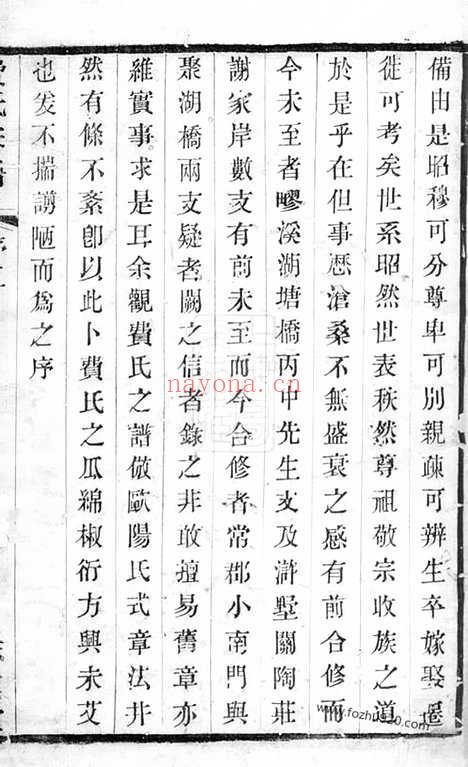 備由是昭穆可分尊卑可別親疎可辨生卒嫁娶遷
徙可考矣世系昭然世表秩然尊祖敬宗收族之道
於是乎在但事歷滄桑不無盛衰之感有前合修而
今未至者疁溪湖塘橋丙中先生支及滸墅關陶莊
謝家岸數支有前未至而今合修者常郡小南門與
聚湖橋兩支疑者闕之信者錄之非敢擅易舊章亦
維實事求是耳余觀費氏之譜倣歐陽氏式章法井
然有條不紊卽以此卜費氏之瓜綿椒衍方興未艾
也爰不揣謭陋而爲之序
nayona.cn
www.fozhu920.com